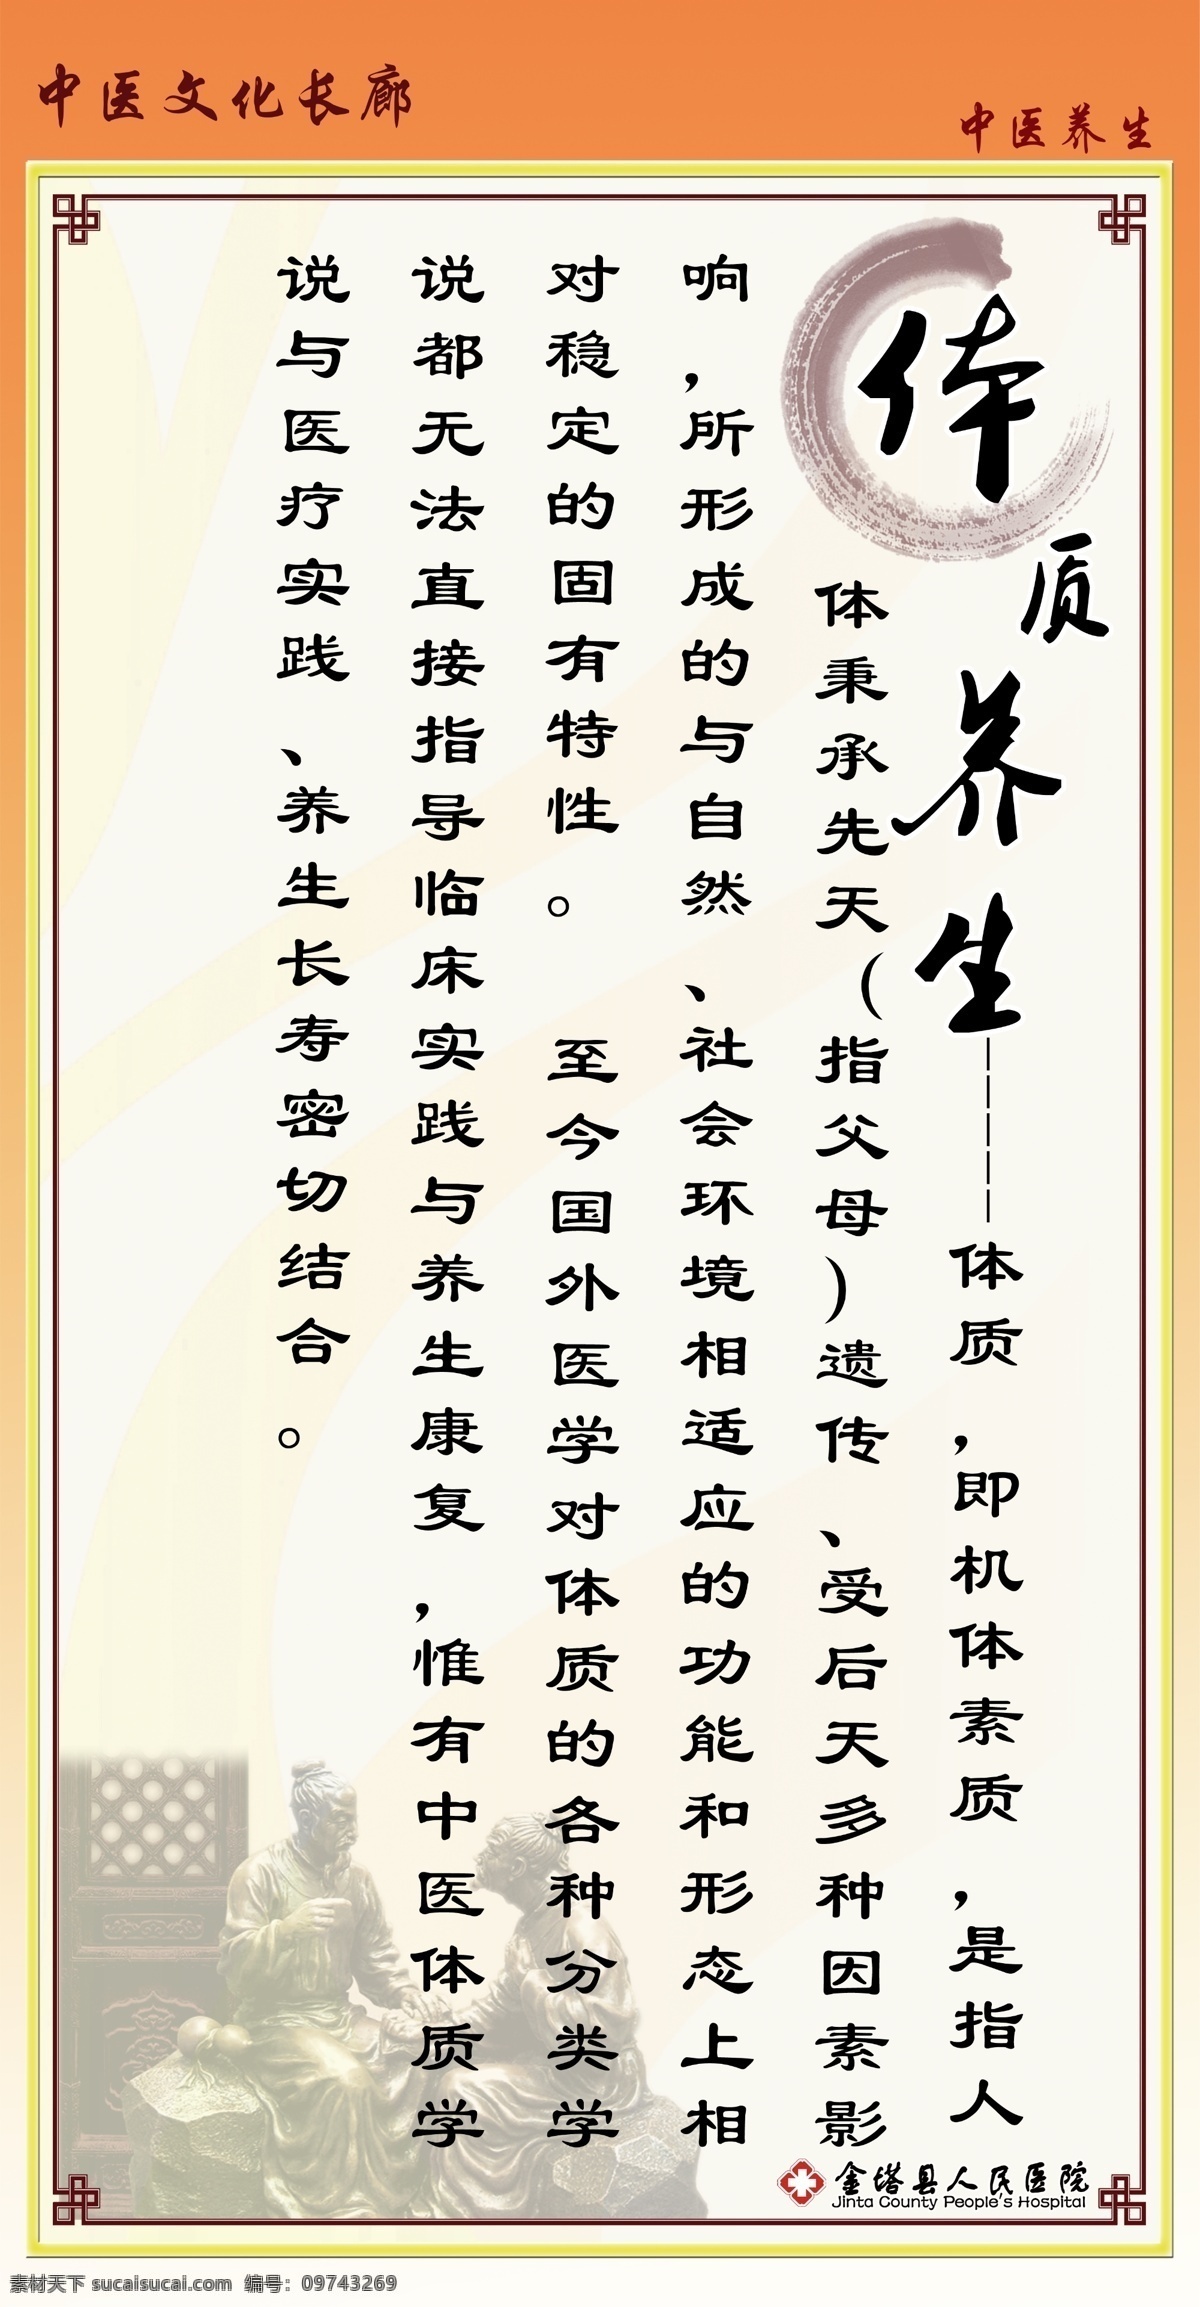 中医文化长廊
中医养生
体质养生-----体质，即机体素质，是指人
体秉承先天(指父母)遗传、受后天多种因素影
响，所形成的与自然、社会环境相适应的功能和形态上相
对稳定的固有特性。 至今国外医学对体质的各种分类学
说都无法直接指导临床实践与养生康复，惟有中医体质学
说与医疗实践、养生长寿密切结合。
金塔县人民医院
Jinta County People's Hospital
素材天下 sucaisucai.com 编号：09743269